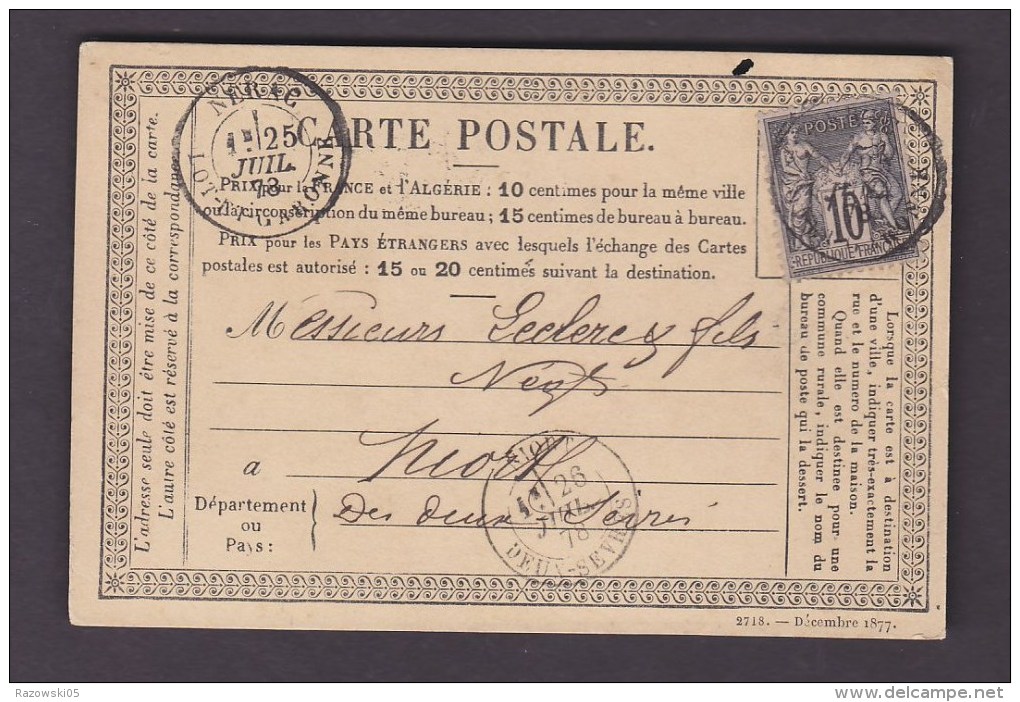 NERAC
25
JUIL.
78
LOT-ET-GARONNE
CARTE POSTALE.
POSTES
10
REPUBLIQUE FRANÇAISE
PRIX pour la FRANCE et l'ALGÉRIE : 10 centimes pour la même ville
ou la circonscription du même bureau ; 15 centimes de bureau à bureau.
PRIX pour les PAYS ÉTRANGERS avec lesquels l'échange des Cartes
postales est autorisé : 15 ou 20 centimes suivant la destination.
L'adresse seule doit être mise de ce côté de la carte.
L'autre côté est réservé à la correspondance.
Messieurs Leclerc & fils
Négts
a Niort
Département
ou
Pays :
Des deux Sèvres
NIORT
26
JUIL.
78
DEUX-SEVRES
Lorsque la carte est à destination
d'une ville, indiquer très-exactement la
rue et le numero de la maison.
Quand elle est destinee pour une
commune rurale, indiquer le nom du
bureau de poste qui la dessert.
2718. — Décembre 1877.
Razowski05
delcampe.net